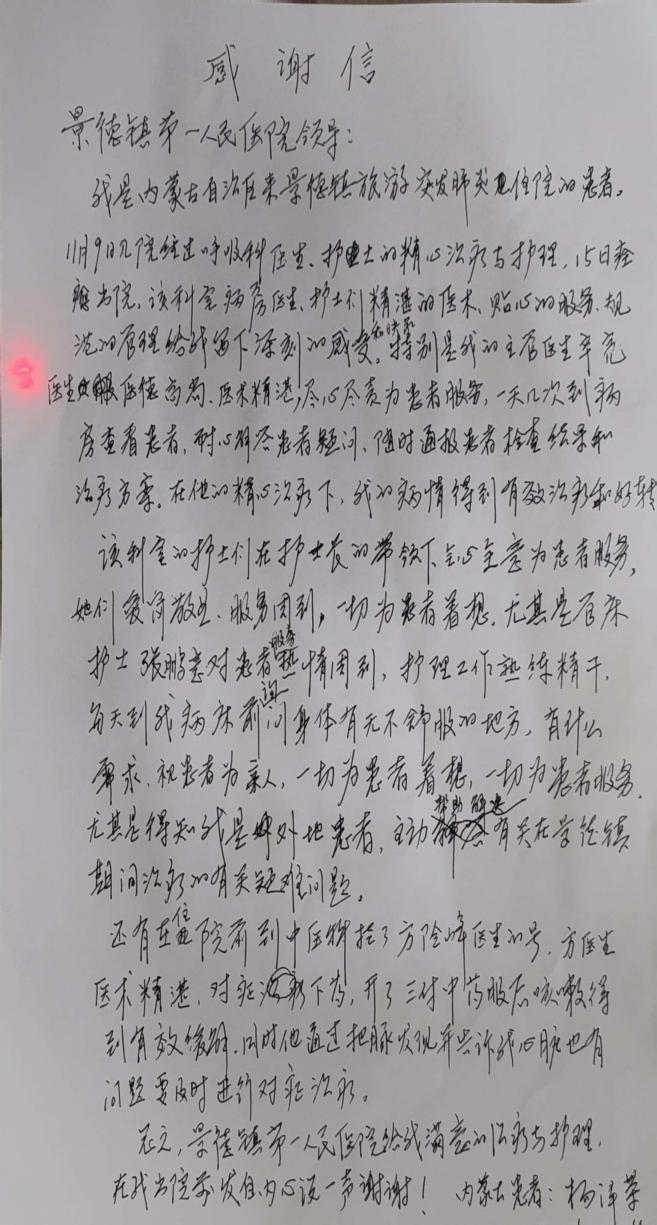 感谢信
景德镇第一人民医院领导：
我是内蒙古自治区来景德镇旅游突发肺炎住院的患者。
11月9日入院经过呼吸科医生、护士的精心治疗与护理，15日痊
愈出院。该科室病房医生、护士们精湛的医术、贴心的服务、规
范的管理给我留下深刻的感受和映象。特别是我的主管医生辛亮
医生医德高尚、医术精湛，尽心尽责为患者服务，一天几次到病
房查看患者，耐心解答患者疑问、随时通报患者检查结果和
治疗方案。在他的精心治疗下，我的病情得到有效治疗和好转
该科室的护士们在护士长的带领下全心全意为患者服务，
她们爱岗敬业、服务周到，一切为患者着想。尤其是管床
护士张鹏意对患者服务热情周到，护理工作熟练精干，
每天到我病床前询问身体有无不舒服的地方，有什么
需求，视患者为亲人，一切为患者着想，一切为患者服务，
尤其是得知我是外地患者，主动帮助解决有关在景德镇
期间治疗的有关疑难问题。
还有在住院前到中医科挂了方险峰医生的号，方医生
医术精湛，对症下药，开了三付中药服后咳嗽得
到有效缓解，同时他通过把脉发现并告诉我心脏也有
问题要及时进行对症治疗。
总之，景德镇第一人民医院给我满意的治疗与护理，
在我出院前发自内心说一声谢谢！ 内蒙古患者：杨泽荣